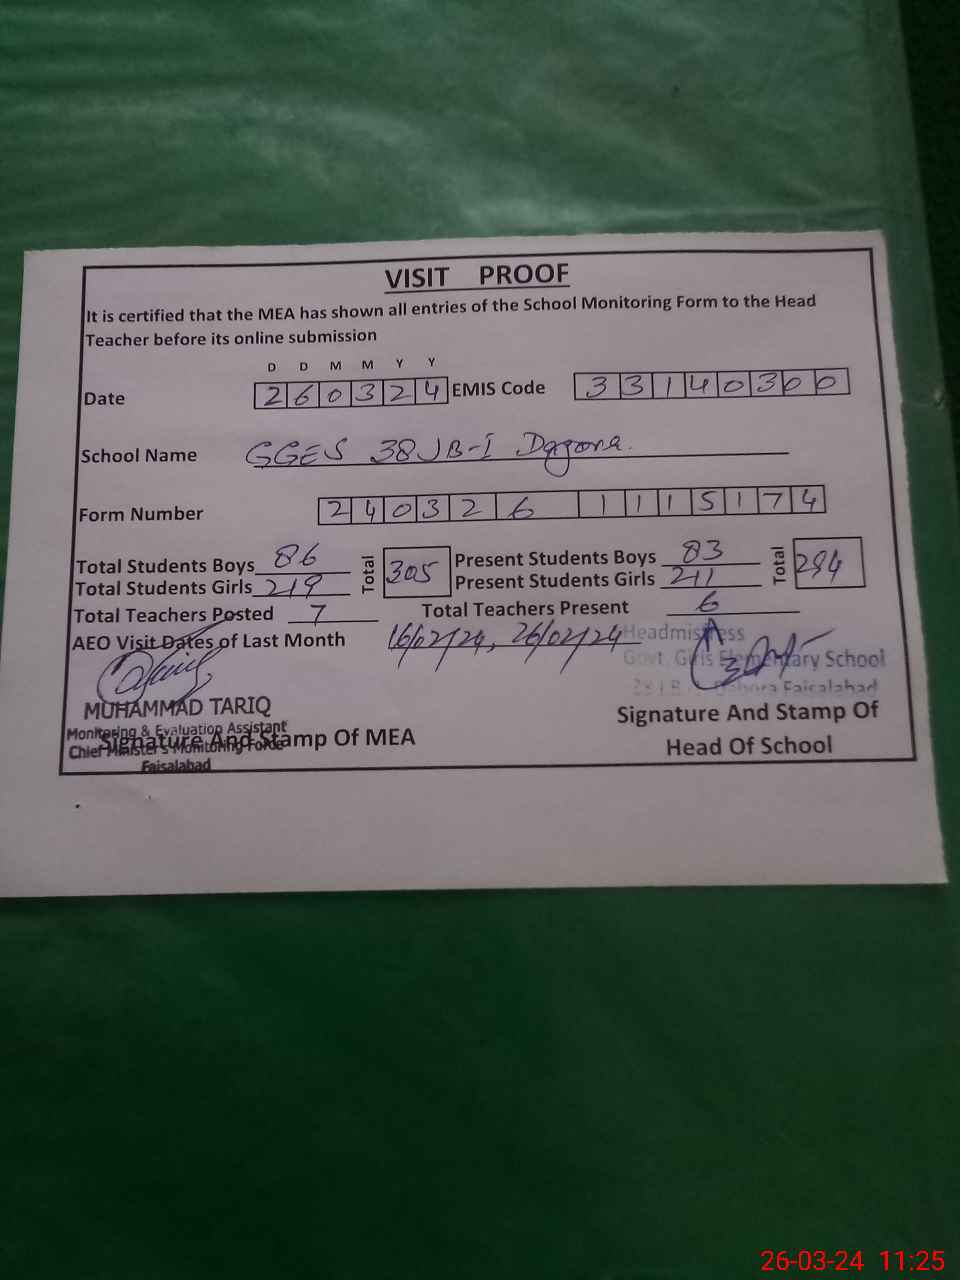 VISIT PROOF
It is certified that the MEA has shown all entries of the School Monitoring Form to the Head
Teacher before its online submission
D D M M Y Y
Date 2 6 0 3 2 4 EMIS Code 3 3 1 4 0 3 0 0
School Name GGES 38JB-I
Form Number 2 4 0 3 2 6 1 1 1 5 1 7 4
Total Students Boys 86 Total 305 Present Students Boys 83 Total 294
Total Students Girls 219 Present Students Girls 211
Total Teachers Posted 7 Total Teachers Present 6
AEO Visit Dates of Last Month 16/02/24, 26/02/24
Headmistress
Govt. Girls Elementary School
Faisalabad
MUHAMMAD TARIQ
Monitoring & Evaluation Assistant
Chief Minister's Monitoring Force
Faisalabad
Signature And Stamp Of MEA
Signature And Stamp Of
Head Of School
26-03-24 11:25